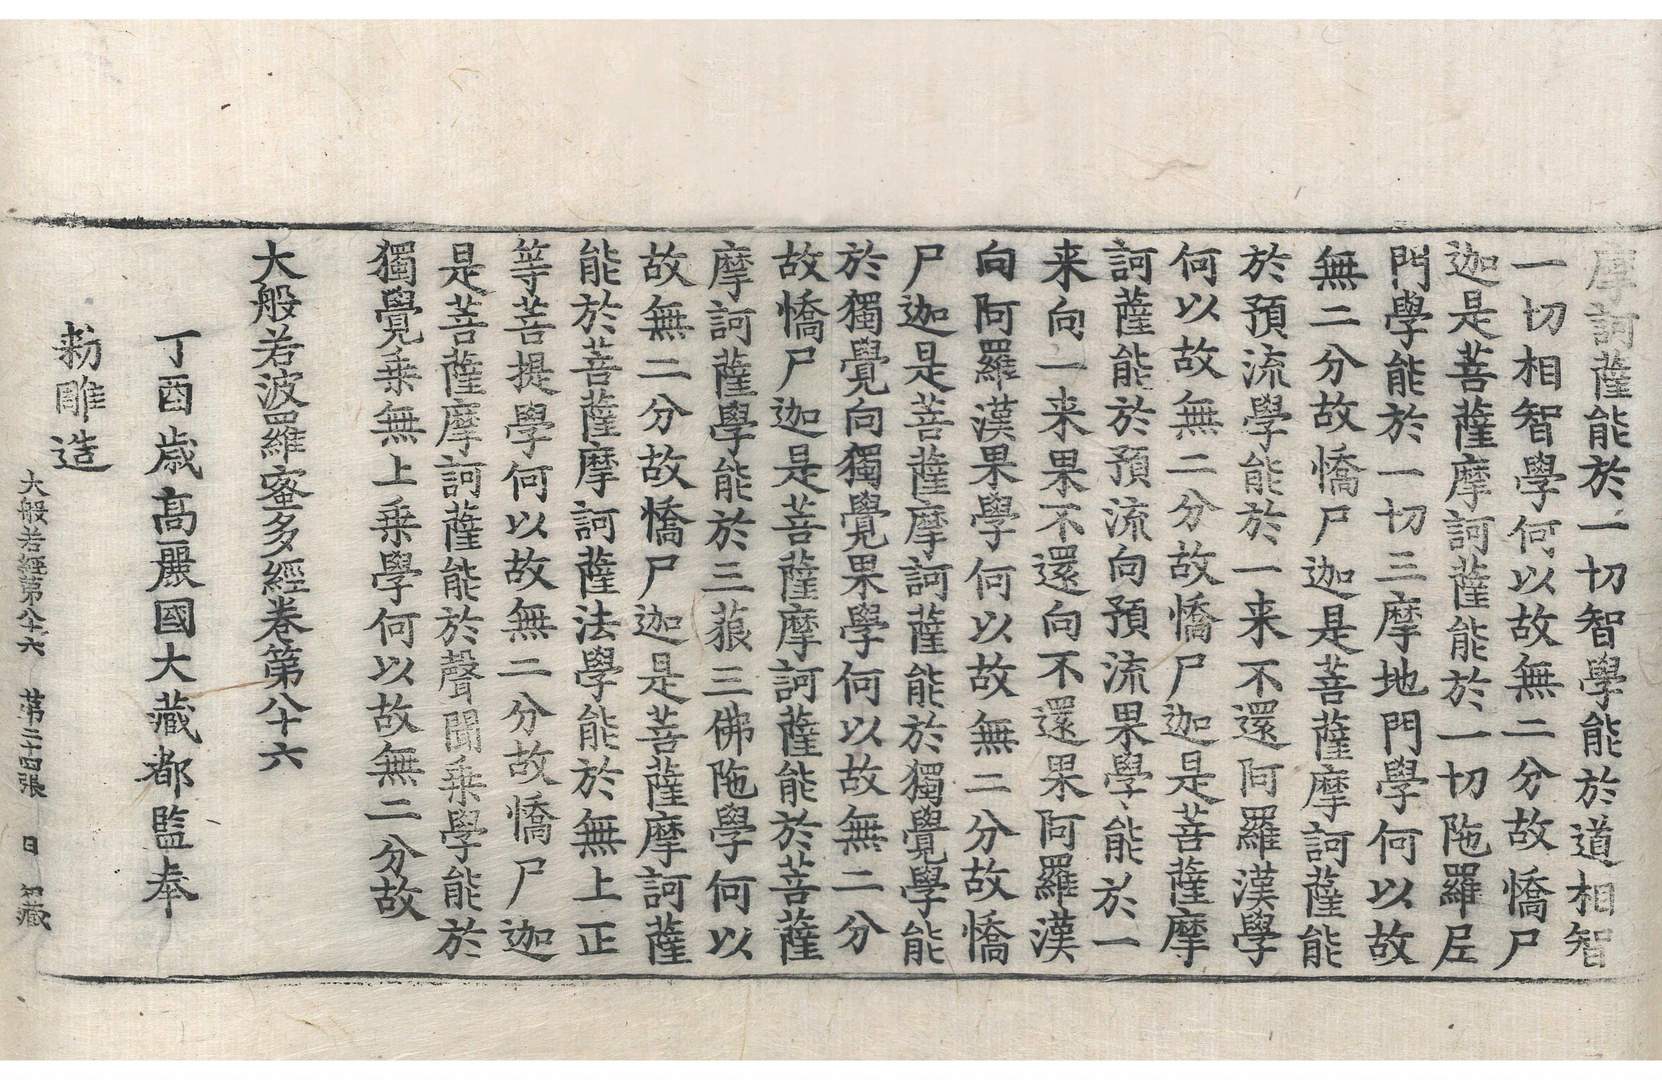 摩訶薩能於一切智學能於道相智
一切相智學何以故無二分故憍尸
迦是菩薩摩訶薩能於一切陁羅尼
門學能於一切三摩地門學何以故
無二分故憍尸迦是菩薩摩訶薩能
於預流學能於一来不還阿羅漢學
何以故無二分故憍尸迦是菩薩摩
訶薩能於預流向預流果學能於一
来向一来果不還向不還果阿羅漢
向阿羅漢果學何以故無二分故憍
尸迦是菩薩摩訶薩能於獨覺學能
於獨覺向獨覺果學何以故無二分
故憍尸迦是菩薩摩訶薩能於菩薩
摩訶薩學能於三藐三佛陁學何以
故無二分故憍尸迦是菩薩摩訶薩
能於菩薩摩訶薩法學能於無上正
等菩提學何以故無二分故憍尸迦
是菩薩摩訶薩能於聲聞乗學能於
獨覺乗無上乗學何以故無二分故
大般若波羅蜜多經卷第八十六
丁酉歳髙麗國大藏都監奉
勑雕造
大般若經第八十六 第二十四張 日 知藏